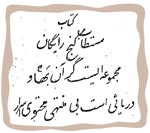 کتاب
مستطاب گنج رایگان
مجموعه ایست گران بها و
دریائی است بی منتهی محتوی بر